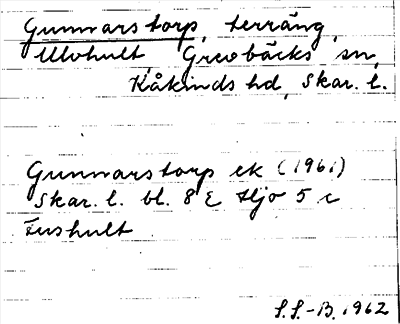 Gunnarstorp, terräng,
Ulvhult, Grevbäcks sn,
Kåkinds hd, Skar. l.
Gunnarstorp ek (1961)
Skar. l. bl. 8 E Hjo 5 c
Fushult
S.S.-B. 1962